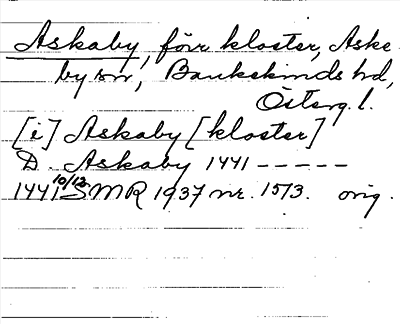 Askaby, förr kloster, Aske
by sn, Bankekinds hd,
Österg. l.
[i] Askaby [kloster]
D. Askaby 1441 -----
1441 10/12 SMR 1937 nr. 1573. orig.